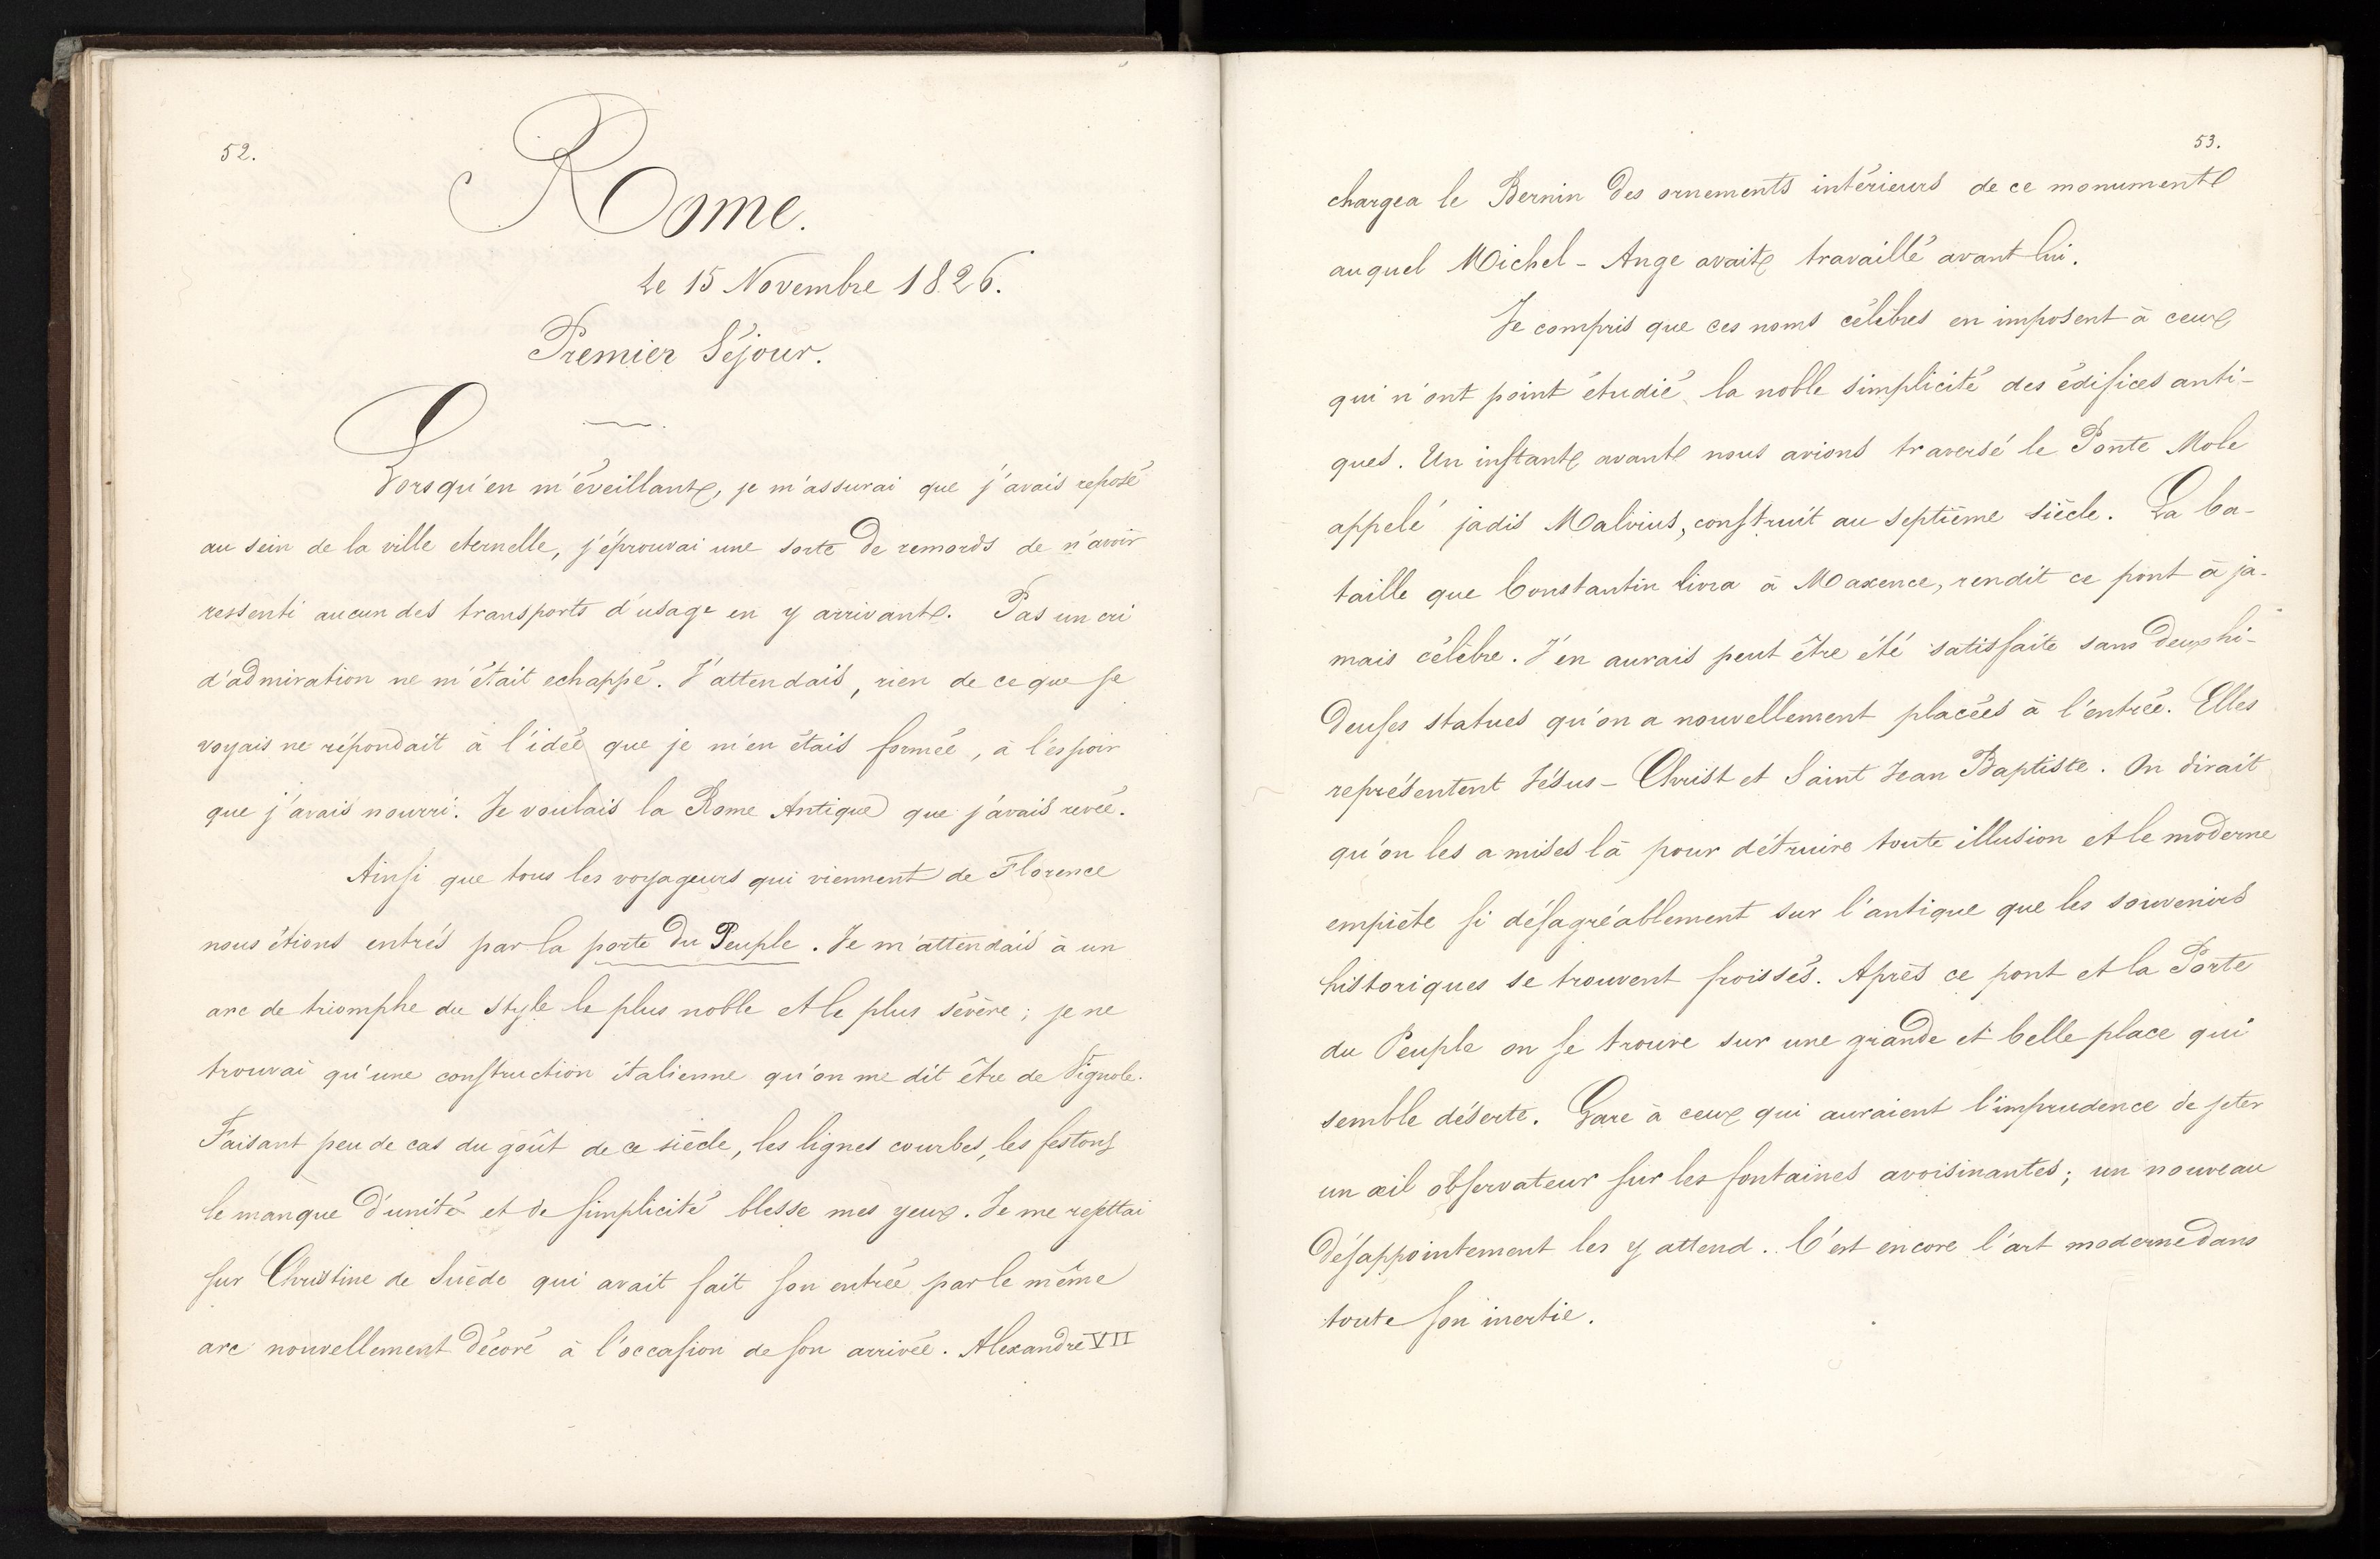 52.
Rome.
Le 15 Novembre 1826.
Premier Séjour.
Lorsqu'en m'éveillant, je m'assurai que j'avais reposé
au sein de la ville eternelle, j'éprouvai une sorte de remords de n'avoir
ressenti aucun des transports d'usage en y arrivant. Pas un cri
d'admiration ne m'était echappé. J'attendais, rien de ce que je
voyais ne répondait à l'idée que je m'en étais formée, à l'espoir
que j'avais nourri. Je voulais la Rome Antique que j'avais revée.
Ainsi que tous les voyageurs qui viennent de Florence
nous étions entrés par la porte du Peuple. Je m'attendais à un
arc de triomphe du style le plus noble et le plus sévère; je ne
trouvai qu'une construction italienne qu'on me dit être de Vignole.
Faisant peu de cas du goût de ce siècle, les lignes courbes, les festons
le manque d'unité et de simplicité blesse mes yeux. Je me rejettai
sur Christine de Suède qui avait fait son entrée par le même
arc nouvellement décoré à l'occasion de son arrivée. Alexandre VII
53.
chargea le Bernin des ornements intérieurs de ce monument
auquel Michel-Ange avait travaillé avant lui.
Je compris que ces noms célèbres en imposent à ceux
qui n'ont point étudié la noble simplicité des édifices anti-
ques. Un instant avant nous avions traversé le Ponte Mole
appelé jadis Malvius, construit au septième siècle. La ba-
taille que Constantin livra à Maxence, rendit ce pont à ja-
mais célèbre. J'en aurais peut être été satisfaite sans deux hi-
deuses statues qu'on a nouvellement placées à l'entrée. Elles
représentent Jésus-Christ et Saint Jean Baptiste. On dirait
qu'on les a mises là pour détruire toute illusion et le moderne
empiète si désagréablement sur l'antique que les souvenirs
historiques se trouvent froissés. Après ce pont et la Porte
du Peuple on se trouve sur une grande et belle place qui
semble déserte. Gare à ceux qui auraient l'imprudence de jeter
un œil observateur sur les fontaines avoisinantes; un nouveau
désappointement les y attend. C'est encore l'art moderne dans
toute son inertie.